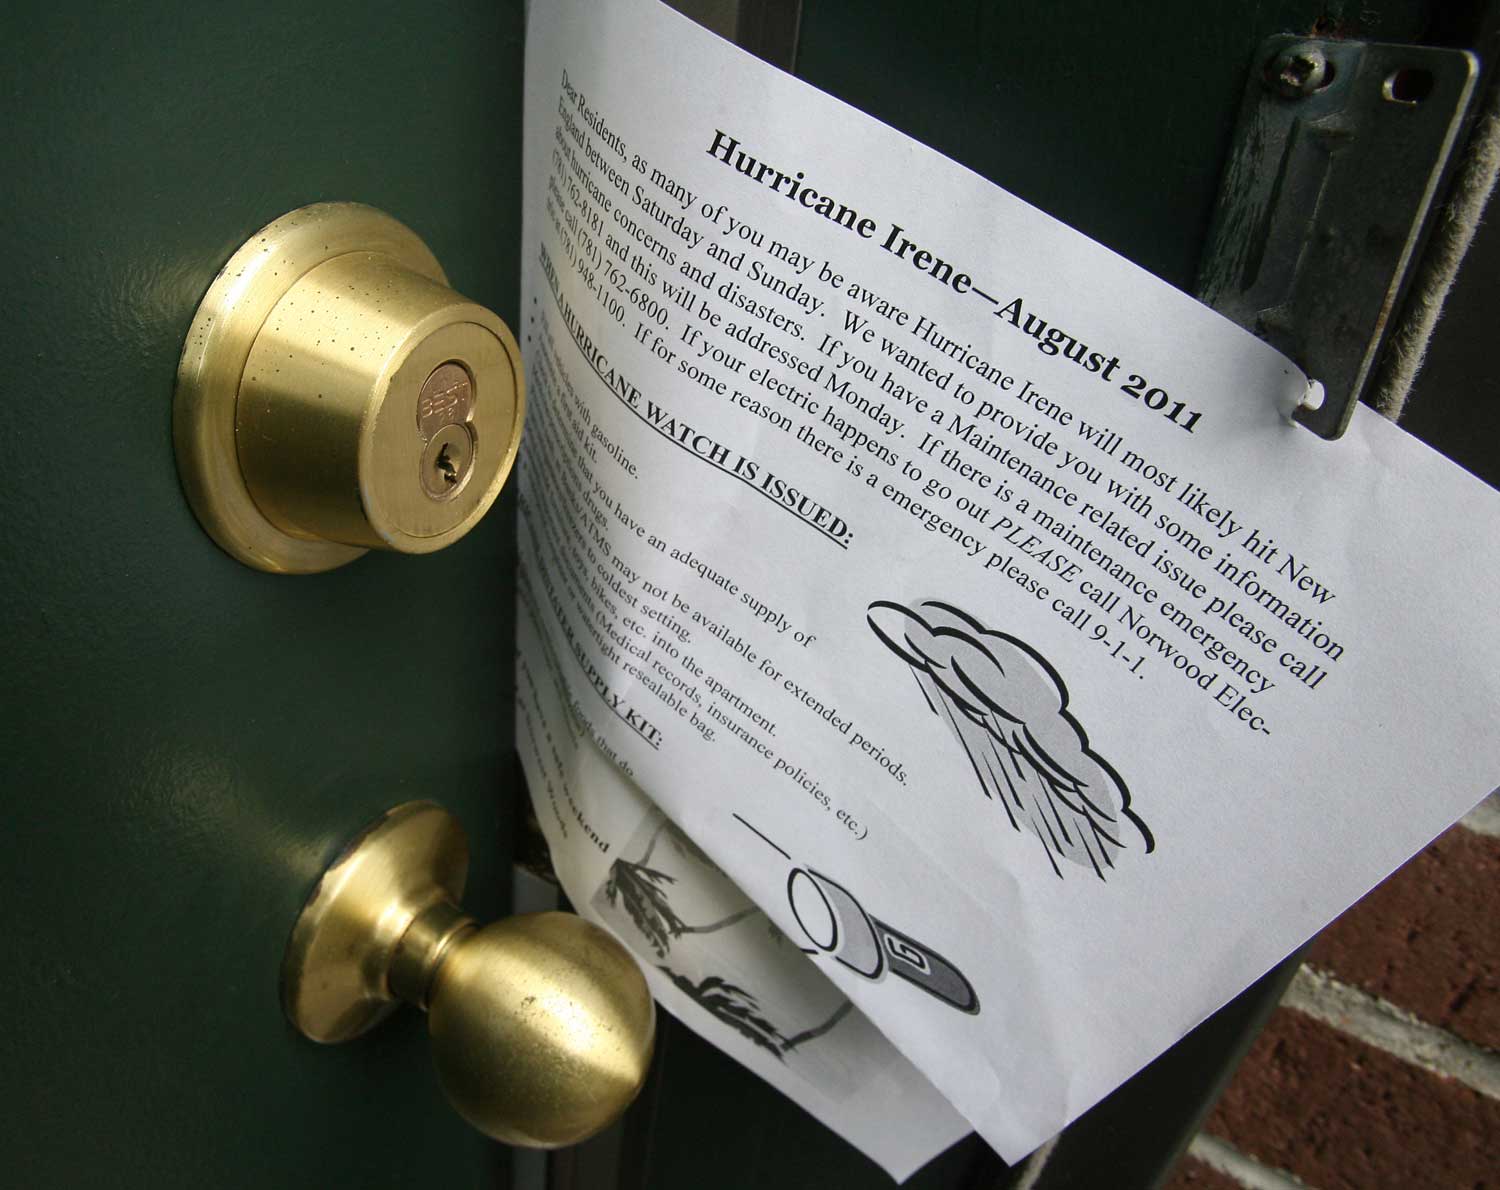 Hurricane Irene—August 2011
Dear Residents, as many of you may be aware Hurricane Irene will most likely hit New
England between Saturday and Sunday. We wanted to provide you with some information
about hurricane concerns and disasters. If you have a Maintenance related issue please call
(781) 762-8181 and this will be addressed Monday. If there is a maintenance emergency
please call (781) 762-6800. If your electric happens to go out PLEASE call Norwood Elec-
(781) 948-1100. If for some reason there is a emergency please call 9-1-1.
WHEN A HURRICANE WATCH IS ISSUED:
vehicles with gasoline.
first aid kit.
that you have an adequate supply of
drugs.
/ATMS may not be available for extended periods.
to coldest setting.
toys, bikes, etc. into the apartment.
(Medical records, insurance policies, etc.)
watertight resealable bag.
SUPPLY KIT:
foods that do
safe weekend
BEST
G